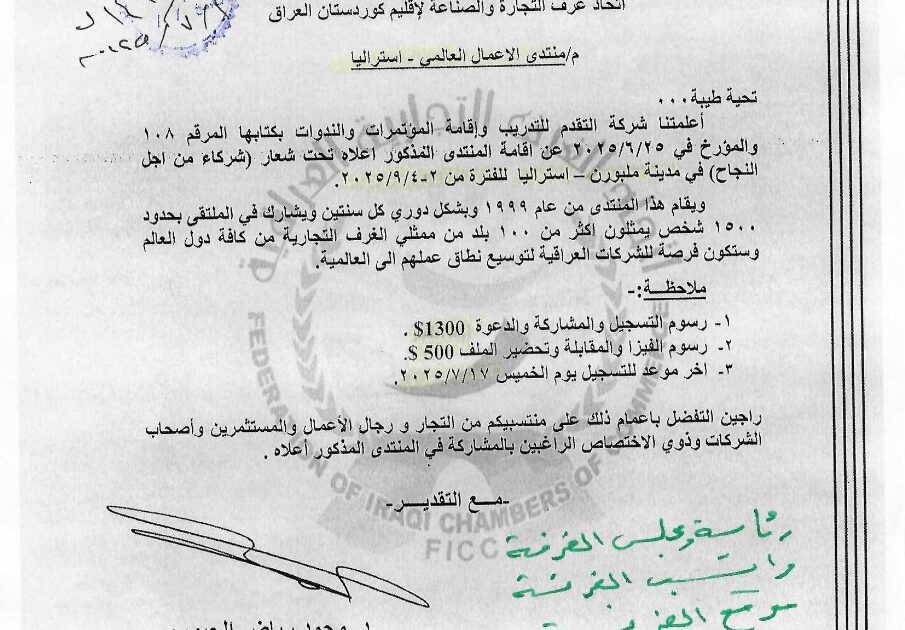 اتحاد غرف التجارة والصناعة لإقليم كوردستان العراق
م/منتدى الاعمال العالمي - استراليا
تحية طيبة...
أعلمتنا شركة التقدم للتدريب وإقامة المؤتمرات والندوات بكتابها المرقم ١٠٨
والمؤرخ في ٢٠٢٥/٦/٢٥ عن اقامة المنتدى المذكور اعلاه تحت شعار (شركاء من اجل
النجاح) في مدينة ملبورن – استراليا للفترة من ٢-٢٠٢٥/٩/٤.
ويقام هذا المنتدى من عام ١٩٩٩ وبشكل دوري كل سنتين ويشارك في الملتقى بحدود
١٥٠٠ شخص يمثلون اكثر من ١٠٠ بلد من ممثلي الغرف التجارية من كافة دول العالم
وستكون فرصة للشركات العراقية لتوسيع نطاق عملهم الى العالمية.
ملاحظـــة:-
١- رسوم التسجيل والمشاركة والدعوة 1300$ .
٢- رسوم الفيزا والمقابلة وتحضير الملف 500 $.
٣- اخر موعد للتسجيل يوم الخميس ٢٠٢٥/٧/١٧.
راجين التفضل باعمام ذلك على منتسبيكم من التجار و رجال الأعمال والمستثمرين وأصحاب
الشركات وذوي الاختصاص الراغبين بالمشاركة في المنتدى المذكور أعلاه .
-مـع التقديـــر-
FEDERATION OF IRAQI CHAMBERS OF COMMERCE
FICC
رئاسة ومجلس الغرفة